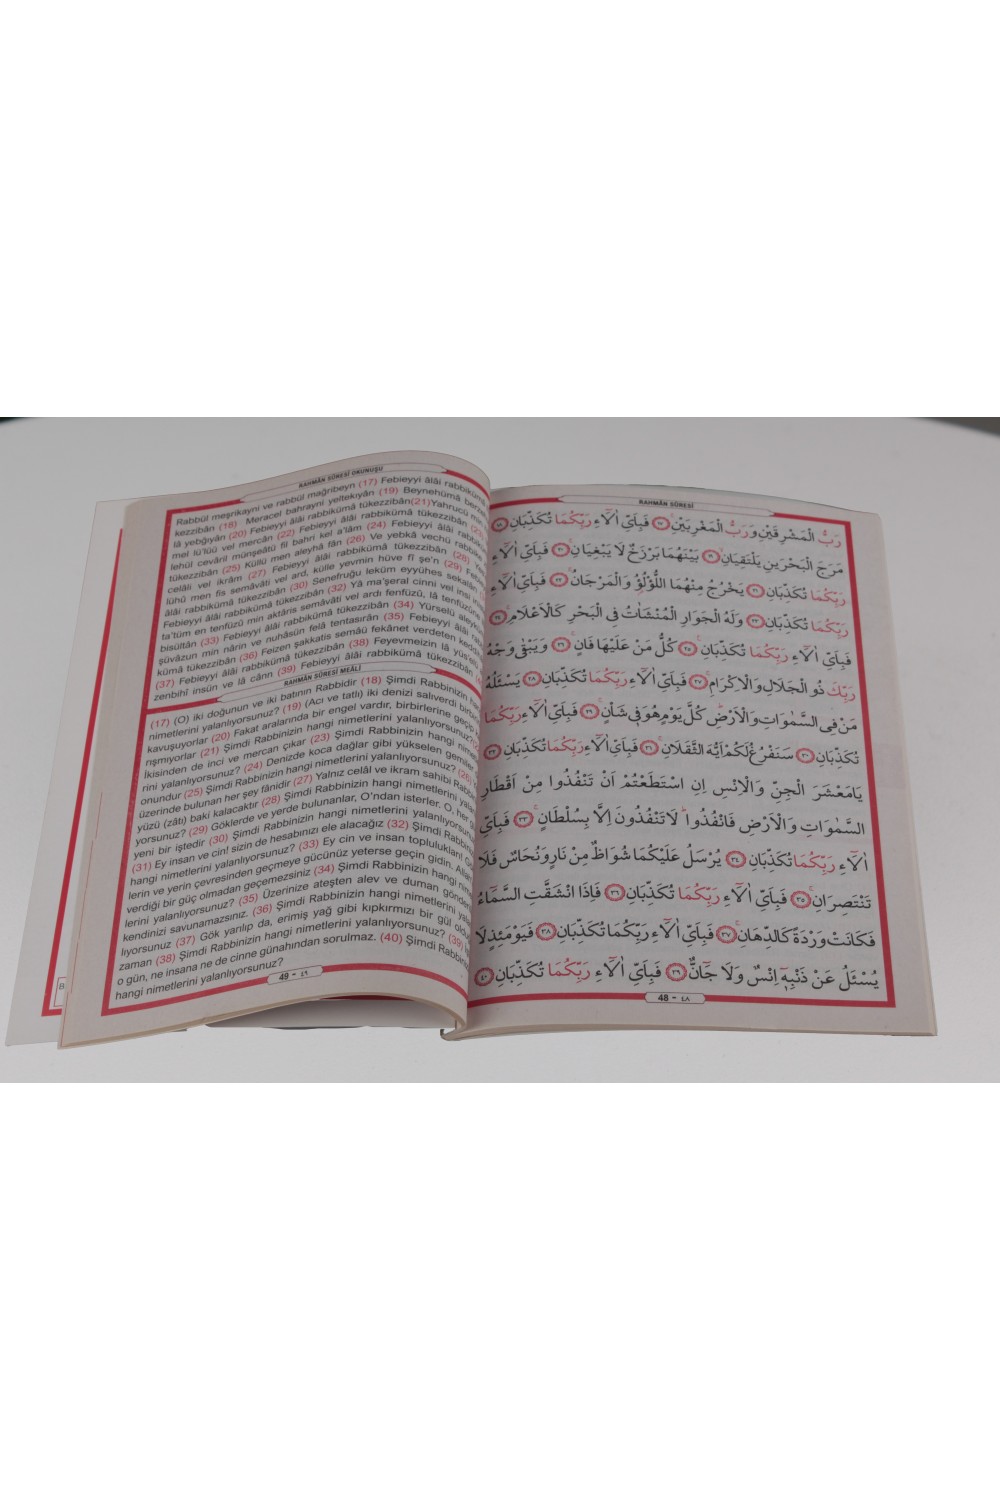 RAHMÂN SÛRESİ OKUNUŞU
Rabbül meşrikayni ve rabbül mağribeyn (17) Febieyyi âlâi rabbikümâ
kezzibân (18) Meracel bahrayni yeltekıyân (19) Beynehümâ
lâ yebğıyân (20) Febieyyi âlâi rabbikümâ tükezzibân(21)Yahrucü
mel lü'lüü vel mercân (22) Febieyyi âlâi rabbikümâ tükezzibân
lehül cevâril münşeâtü fil bahri kel a'lâm (24) Febieyyi âlâi
tükezzibân (25) Küllü men aleyhâ fân (26) Ve yebkâ vechü
celâli vel ikrâm (27) Febieyyi âlâi rabbikümâ tükezzibân (28)
lühü men fis semâvâti vel ard, külle yevmin hüve fî şe'n (29)
âlâi rabbikümâ tükezzibân (30) Senefruğu leküm eyyühes
Febieyyi âlâi rabbikümâ tükezzibân (32) Yâ ma'şeral cinni vel
ta'tüm en tenfüzû min aktâris semâvâti vel ardı fenfüzû, lâ
bisültân (33) Febieyyi âlâi rabbikümâ tükezzibân (34) Yürselü
şüvâzun min nârin ve nuhâsün felâ tentasırân (35) Febieyyi âlâi
kümâ tükezzibân (36) Feizen şakkatis semâü fekânet verdeten
(37) Febieyyi âlâi rabbikümâ tükezzibân (38) Feyevmeizin lâ
zenbihî insün ve lâ cânn (39) Febieyyi âlâi rabbikümâ tükezzibân
RAHMÂN SÛRESİ MEÂLİ
(17) (O) iki doğunun ve iki batının Rabbidir (18) Şimdi Rabbinizin
nimetlerini yalanlıyorsunuz? (19) (Acı ve tatlı) iki denizi salıverdi
kavuşuyorlar (20) Fakat aralarında bir engel vardır, birbirlerine geçip
rışmıyorlar (21) Şimdi Rabbinizin hangi nimetlerini yalanlıyorsunuz?
İkisinden de inci ve mercan çıkar (23) Şimdi Rabbinizin hangi
rini yalanlıyorsunuz? (24) Denizde koca dağlar gibi yükselen gemiler
onundur (25) Şimdi Rabbinizin hangi nimetlerini yalanlıyorsunuz?
üzerinde bulunan her şey fânidir (27) Yalnız celâl ve ikram sahibi
yüzü (zâtı) baki kalacaktır (28) Şimdi Rabbinizin hangi nimetlerini
yorsunuz? (29) Göklerde ve yerde bulunanlar, O'ndan isterler. O,
yeni bir iştedir (30) Şimdi Rabbinizin hangi nimetlerini yalanlıyorsunuz
(31) Ey insan ve cin! sizin de hesabınızı ele alacağız (32) Şimdi
hangi nimetlerini yalanlıyorsunuz? (33) Ey cin ve insan toplulukları!
lerin ve yerin çevresinden geçmeye gücünüz yeterse geçin gidin.
verdiği bir güç olmadan geçemezsiniz (34) Şimdi Rabbinizin hangi
lerini yalanlıyorsunuz? (35) Üzerinize ateşten alev ve duman
kendinizi savunamazsınız. (36) Şimdi Rabbinizin hangi nimetlerini
lıyorsunuz (37) Gök yarılıp da, erimiş yağ gibi kıpkırmızı bir gül
zaman (38) Şimdi Rabbinizin hangi nimetlerini yalanlıyorsunuz? (39)
o gün, ne insana ne de cinne günahından sorulmaz. (40) Şimdi
hangi nimetlerini yalanlıyorsunuz?
49 - ٤٩
RAHMÂN SÛRESİ
رَبُّ الْمَشْرِقَيْنِ وَرَبُّ الْمَغْرِبَيْنِ ١٧ فَبِاَىِّ اٰلَٓاءِ رَبِّكُمَا تُكَذِّبَانِ ١٨
مَرَجَ الْبَحْرَيْنِ يَلْتَقِيَانِ ١٩ بَيْنَهُمَا بَرْزَخٌ لَا يَبْغِيَانِ ٢٠ فَبِاَىِّ اٰلَٓاءِ
رَبِّكُمَا تُكَذِّبَانِ ٢١ يَخْرُجُ مِنْهُمَا اللُّؤْلُؤُ وَالْمَرْجَانُ ٢٢ فَبِاَىِّ اٰلَٓاءِ
رَبِّكُمَا تُكَذِّبَانِ ٢٣ وَلَهُ الْجَوَارِ الْمُنْشَاٰتُ فِى الْبَحْرِ كَالْاَعْلَامِ ٢٤
فَبِاَىِّ اٰلَٓاءِ رَبِّكُمَا تُكَذِّبَانِ ٢٥ كُلُّ مَنْ عَلَيْهَا فَانٍ ٢٦ وَيَبْقٰى وَجْهُ
رَبِّكَ ذُو الْجَلَالِ وَالْاِكْرَامِ ٢٧ فَبِاَىِّ اٰلَٓاءِ رَبِّكُمَا تُكَذِّبَانِ ٢٨ يَسْئَلُهُ
مَنْ فِى السَّمٰوَاتِ وَالْاَرْضِ كُلَّ يَوْمٍ هُوَ فِى شَاْنٍ ٢٩ فَبِاَىِّ اٰلَٓاءِ رَبِّكُمَا
تُكَذِّبَانِ ٣٠ سَنَفْرُغُ لَكُمْ اَيُّهَ الثَّقَلَانِ ٣١ فَبِاَىِّ اٰلَٓاءِ رَبِّكُمَا تُكَذِّبَانِ ٣٢
يَامَعْشَرَ الْجِنِّ وَالْاِنْسِ اِنِ اسْتَطَعْتُمْ اَنْ تَنْفُذُوا مِنْ اَقْطَارِ
السَّمٰوَاتِ وَالْاَرْضِ فَانْفُذُوا لَا تَنْفُذُونَ اِلَّا بِسُلْطَانٍ ٣٣ فَبِاَىِّ
اٰلَٓاءِ رَبِّكُمَا تُكَذِّبَانِ ٣٤ يُرْسَلُ عَلَيْكُمَا شُوَاظٌ مِنْ نَارٍ وَنُحَاسٌ فَلَا
تَنْتَصِرَانِ ٣٥ فَبِاَىِّ اٰلَٓاءِ رَبِّكُمَا تُكَذِّبَانِ ٣٦ فَاِذَا انْشَقَّتِ السَّمَٓاءُ
فَكَانَتْ وَرْدَةً كَالدِّهَانِ ٣٧ فَبِاَىِّ اٰلَٓاءِ رَبِّكُمَا تُكَذِّبَانِ ٣٨ فَيَوْمَئِذٍ لَا
يُسْئَلُ عَنْ ذَنْبِهٖٓ اِنْسٌ وَلَا جَٓانٌّ ٣٩ فَبِاَىِّ اٰلَٓاءِ رَبِّكُمَا تُكَذِّبَانِ ٤٠
48 - ٤٨